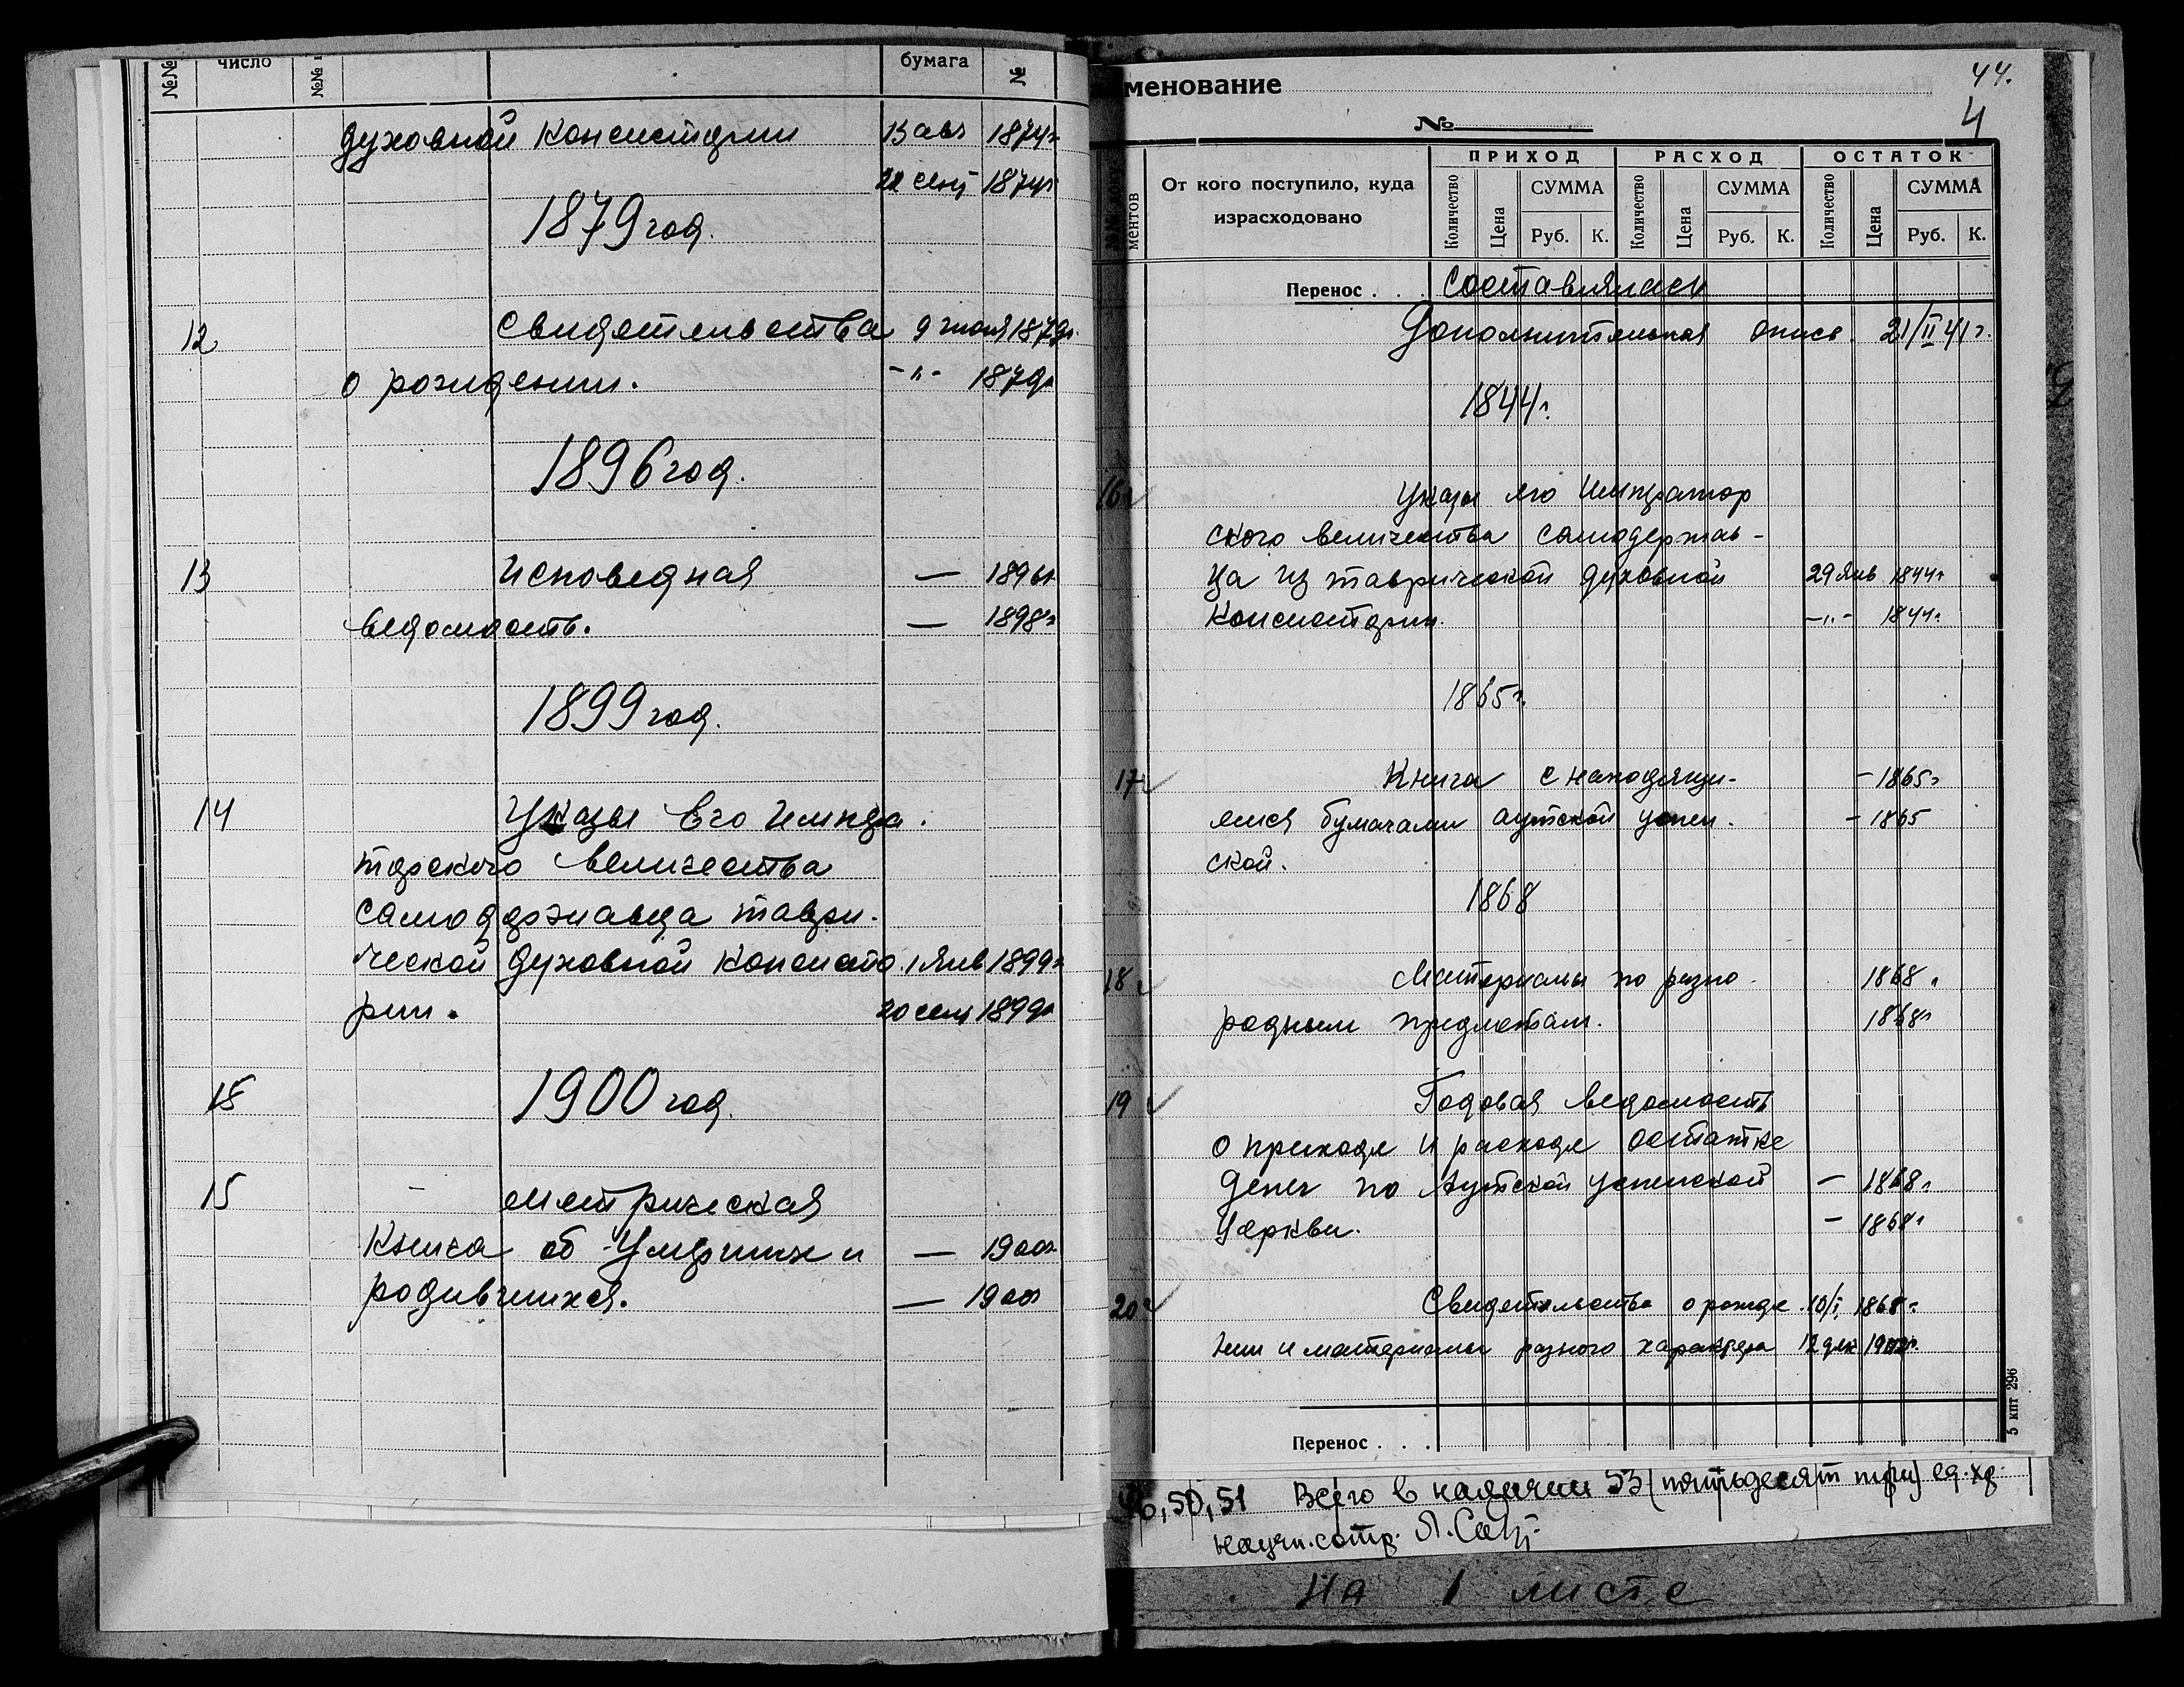 №№ число №№ бумага №
духовной консистории 13 авг 1874г
22 сент 1874г
1879 год.
12 свидетельства 9 июля 1879г.
о рождении. -"- 1879г
1896 год.
13 Исповедная — 1896г.
ведомость. — 1898г
1899 год.
14 Указы Его Импера.
торского величества
самодержавца таври-
ческой духовной консисто. 1 янв 1899г
рии. 20 сент 1899г
15 1900 год.
15 метрическая
книга об умерших и — 1900г.
родившихся. — 1900г
менование
44.
4
№
ментов От кого поступило, куда израсходовано
ПРИХОД РАСХОД ОСТАТОК
Количество Цена СУММА Руб. К. Количество Цена СУММА Руб. К. Количество Цена СУММА Руб. К.
Перенос . . . составлялась
Дополнительная опись. 21/II 41г.
1844г.
16 Указы его император
ского величества самодержав-
ца из таврической духовной 29 янв 1844г
консистории. -"- 1844г.
1865г.
17 Книга с находящи- - 1865г
мися бумагами аутской успен. - 1865
ской.
1868
18 Материалы по разно- 1868г
родным предметам. 1868г
19 Годовая ведомость
о приходе и расходе остатке
денег по Аутской успенской — 1868г
Церкви. — 1868г
20 Свидетельства о рожде. 10/I 1868г.
нии и материалы разного характера 12 дек 1902г.
Перенос . . .
5 кпт 296
50, 51 Всего в наличии 53 (пятьдесят три) ед. хр.
научн. сотр.
на 1 листе